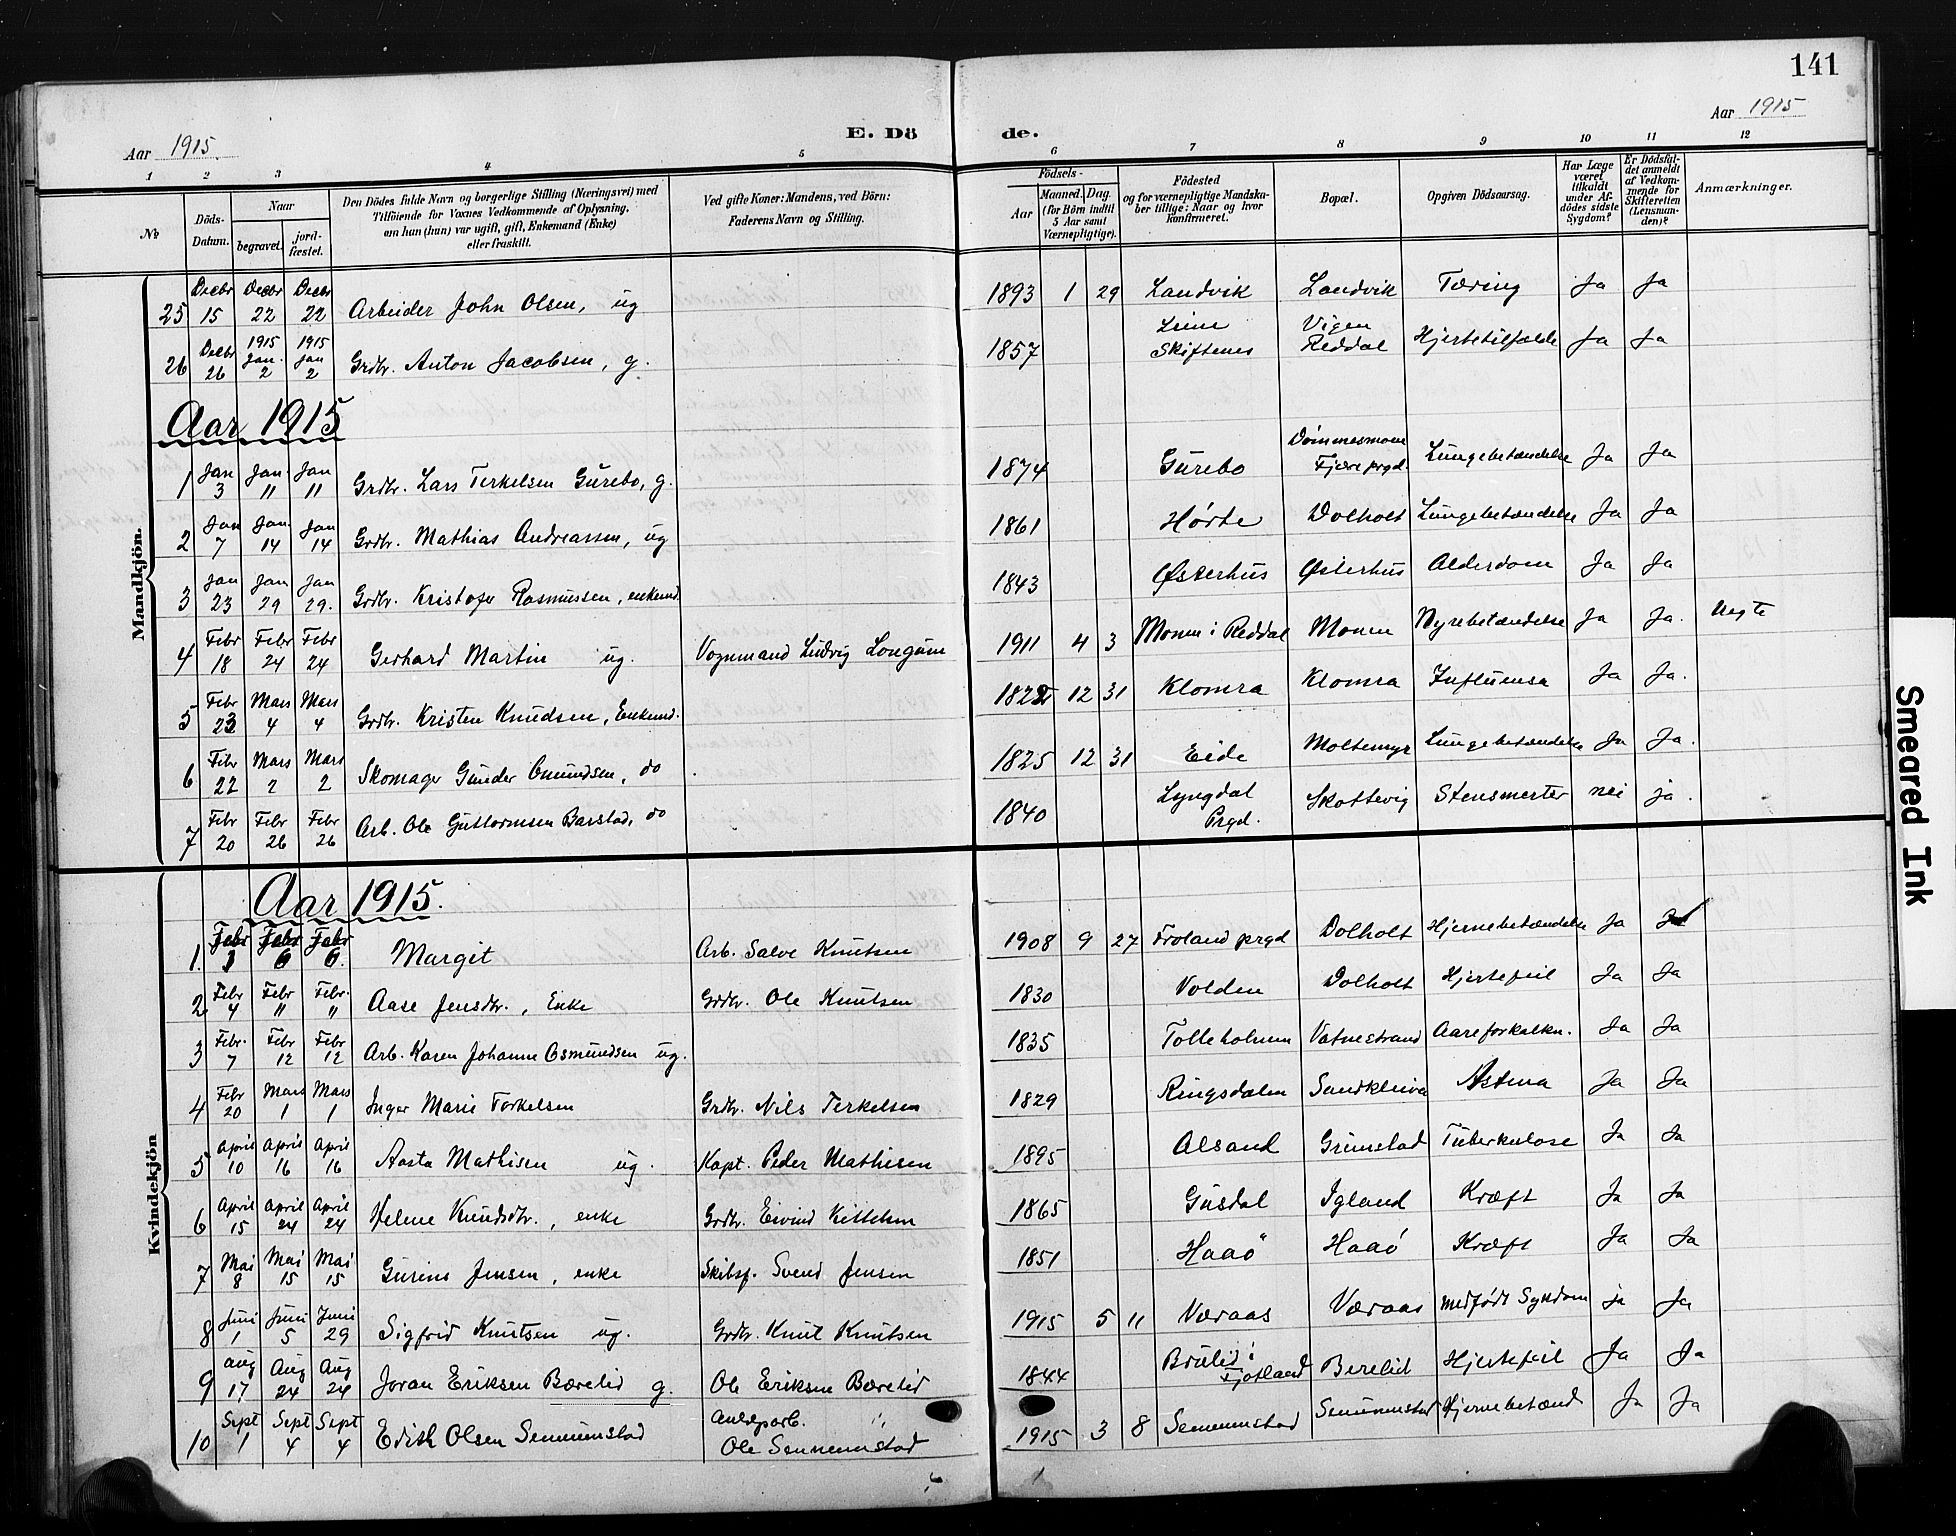 141
Aar 1915. E. Dö de. Aar 1915
1 2 3 4 5 6 7 8 9 10 11 12
№
Döds-Datum.
Naar
begravet.
jord-fæstet.
Den Dödes fulde Navn og borgerlige Stilling (Næringsvei) med
Tilföiende for Voxnes Vedkommende af Oplysning,
om han (hun) var ugift, gift, Enkemand (Enke)
eller fraskilt.
Ved gifte Koner: Mandens, ved Börn:
Faderens Navn og Stilling.
Födsels-
Aar
Maaned. Dag.
(for Börn indtil
5 Aar samt
Værnepligtige).
Födested
og for værnepligtige Mandska-
ber tillige: Naar og hvor
konfirmeret.
Bopæl.
Opgiven Dödsaarsag.
Har Læge
været
tilkaldt
under Af-
dödes sidste
Sygdom?
Er Dödsfal-
det anmeldt
af Vedkom-
mende for
Skifteretten
(Lensman-
den)?
Anmærkninger.
Mandkjön.
25 Decbr 15 Decbr 22 Decbr 22 Arbeider John Olsen, ug 1893 1 29 Landvik Landvik Tæring Ja Ja
26 Decbr 26 1915 Jan. 2 1915 Jan 2 Grdbr. Anton Jacobsen, g. 1857 Skiftenes Vigen Reddal Hjertetilfælde Ja Ja
Aar 1915
1 Jan 3 Jan. 11 Jan 11 Grdbr. Lars Terkelsen Gurebo, g. 1874 Gurebo Dømmesmoen Fjære prgd. Lungebetændelse Ja Ja
2 Jan 7 Jan. 14 Jan 14 Grdbr. Mathias Andreassen, ug 1861 Hørte Dolholt Lungebetændelse Ja Ja
3 Jan 23 Jan 29 Jan 29. Grdbr. Kristofer Rasmussen, enkemd. 1843 Østerhus Østerhus Alderdom Ja Ja
4 Febr 18 Febr 24 Febr 24 Gerhard Martin ug. Vognmand Ludvig Longum 1911 4 3 Monen i Reddal Monen Nyrebetændelse Ja Ja. Uegte
5 Febr 23 Mars 4 Mars 4 Grdbr. Kristen Knudsen, Enkemd. 12 31 Klomra Klomra Influensa Ja Ja.
6 Febr 22 Mars 2 Mars 2 Skomager Gunder Omundsen, do 1825 12 31 Eide Moltemyr Lungebetændelse Ja Ja.
7 Febr 20 Febr 26 Febr 26 Arb. Ole Guttormsen Barstad, do 1840 Lyngdal Prgd. Skottevig Stensmerter nei ja.
Kvindekjön
Aar 1915.
1. Febr 3 Febr 6 Febr 6. Margit Arb. Salve Knutsen 1908 9 27 Froland prgd Dolholt Hjernebetændelse Ja Ja
2 Febr 4 Febr 11 Febr. 11 Aase Jensdtr., Enke Grdbr. Ole Knutsen 1830 Volden Dolholt Hjertefeil Ja Ja
3 Febr. 7 Febr 12 Febr 12 Arb. Karen Johanne Osmundsen ug. 1835 Tolleholmen Vatnestrand Aareforkalkn. Ja Ja
4 Febr 20 Mars 1 Mars 1 Inger Marie Torkelsen Grdbr. Nils Terkelsen 1829 Ringsdalen Sandkleiva Astma Ja Ja
5 April 10 April 16 April 16 Aasta Mathisen ug. Kapt. Peder Mathisen 1895 Alsand Grimstad Tuberkulose Ja Ja
6 April 15 April 24 April 24 Helene Knudsdtr., enke Grdbr. Eivind Kittelsen 1865 Gusdal Igland Kræft Ja Ja
7 Mai 8 Mai 15 Mai 15 Gurine Jensen, enke Skibsf. Svend Jensen 1851 Haaö Haaó Kræft Ja Ja
8 Juni 1 Juni 5 Juni 29 Sigfrid Knutsen ug. Grdbr. Knut Knutsen 1915 5 11 Væraas Væraas Medfødt Sykdom ja Ja
9 Aug 17 Aug 24 Aug 24 Joran Eriksen Bærelid g. Ole Eriksen Bærelid 1844 Fjotland Berelid Hjertefeil Ja Ja
10 Sept 1 Sept 4 Sept 4 Edith Olsen Sennumstad Anlægsarb. Ole Sennumstad 1915 3 8 Sennumstad Sennumstad Hjernebetænd Ja Ja
Smeared Ink